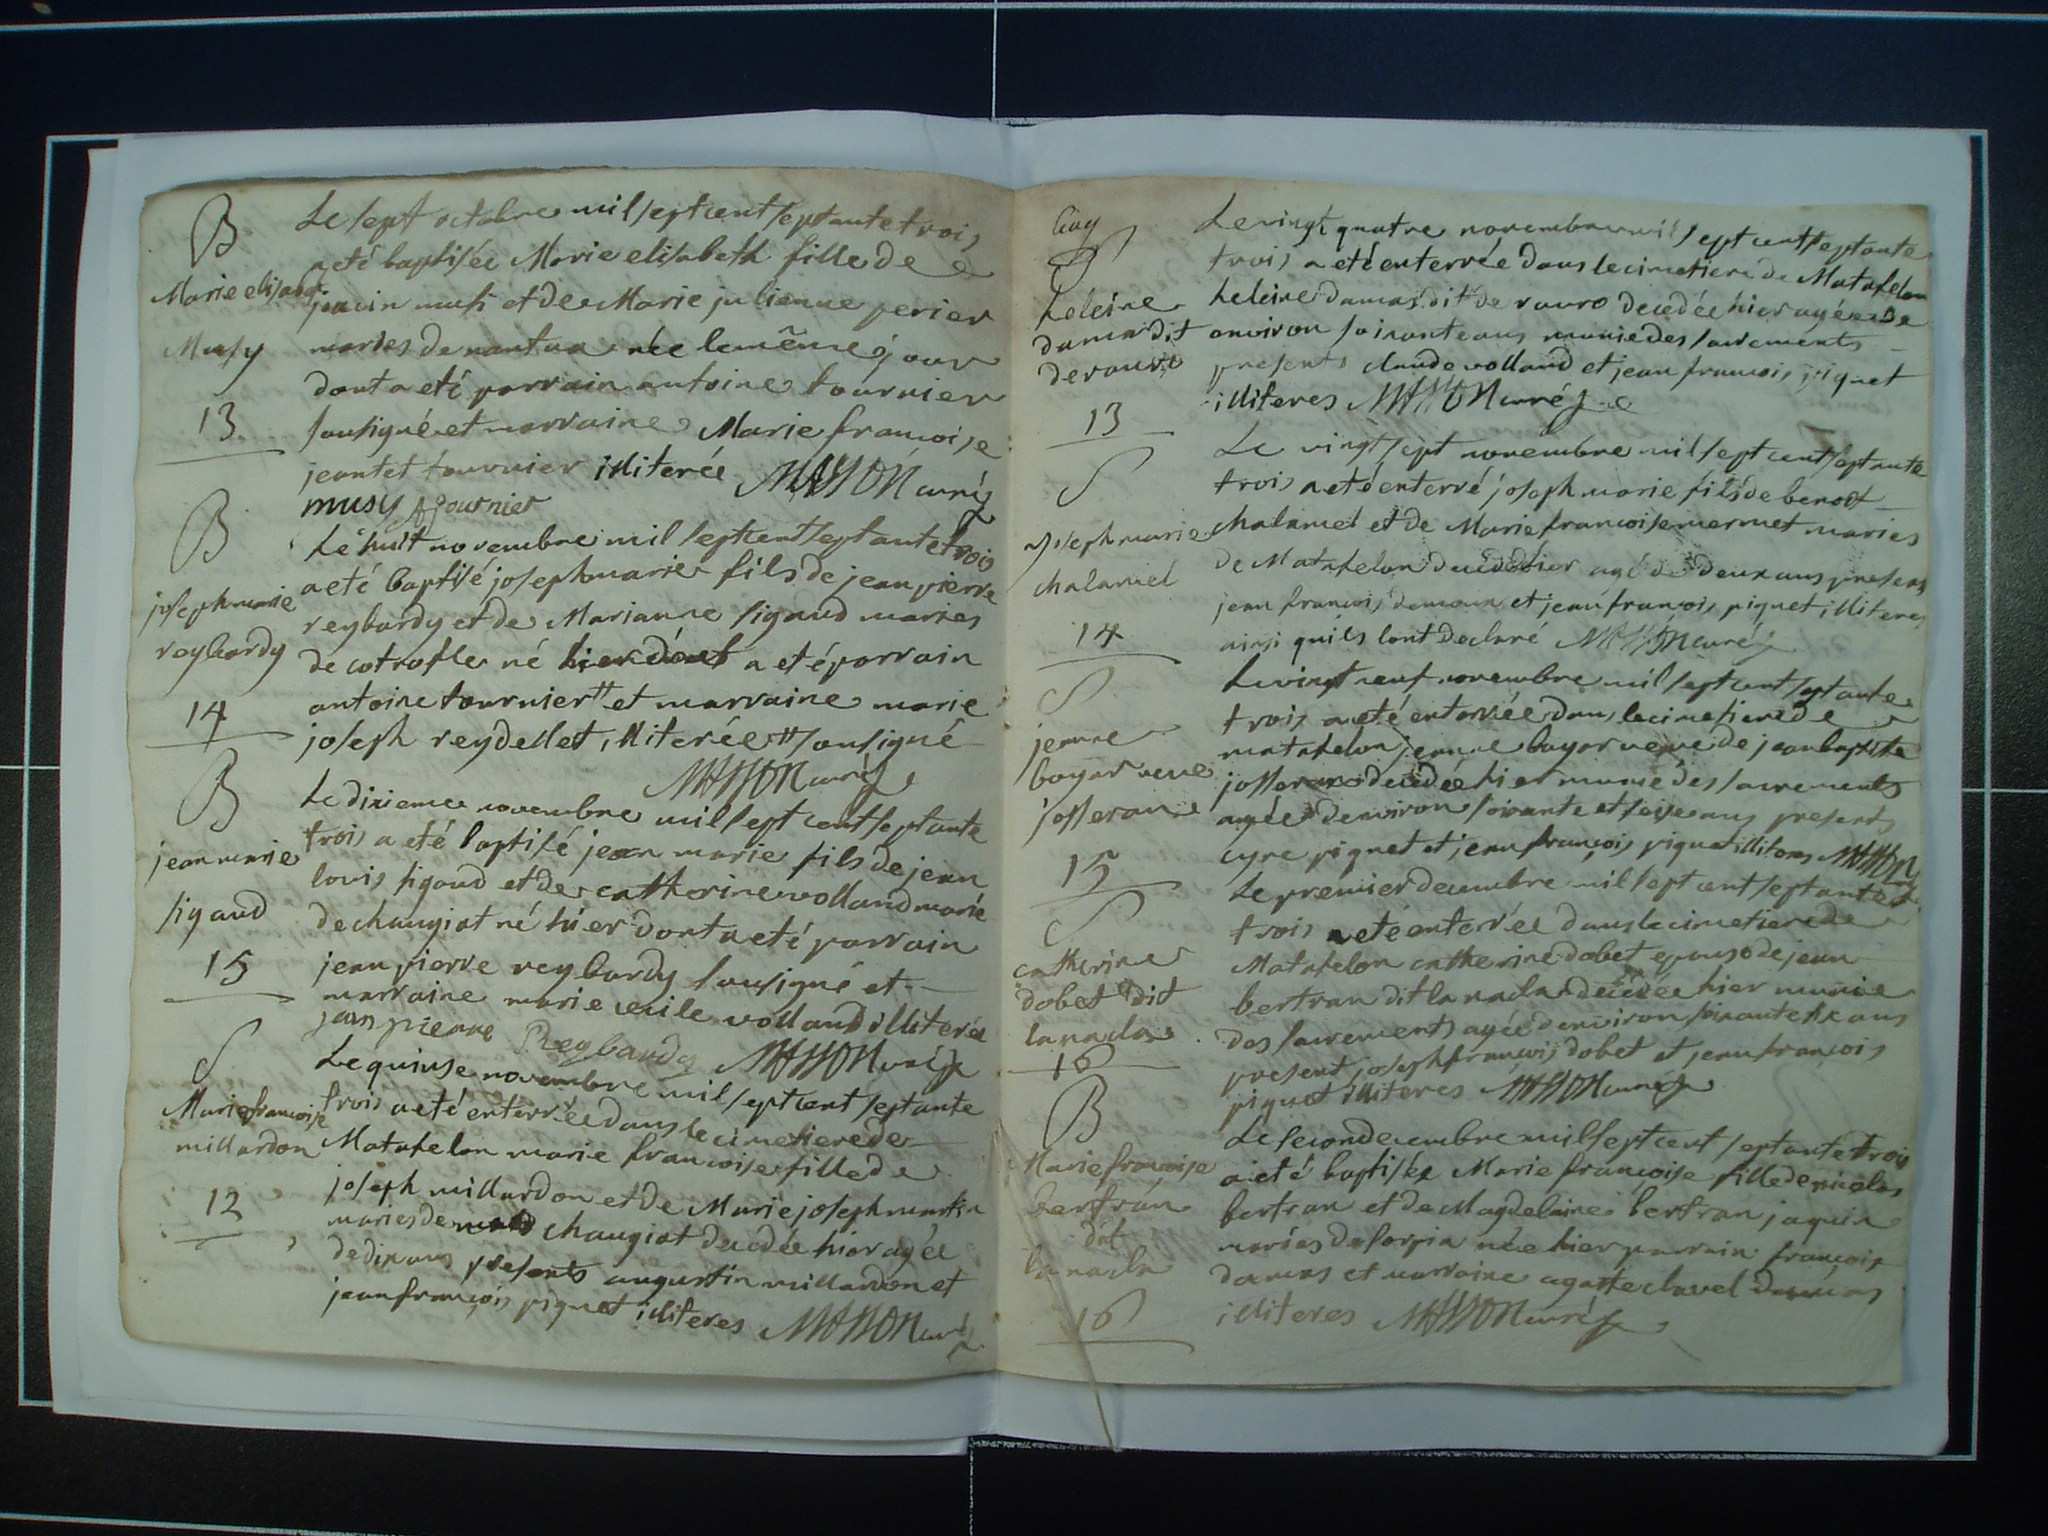 B
Marie elisabet
Musy
13
Le sept octobre mil sept cent septante trois
a eté baptisée Marie elisabeth fille de
jacin musi et de Marie julienne perier
maries de nantua née le même jour
dont a eté parrain antoine tournier
sousigné et marraine Marie francoise
jeantet tournier illiterée MASSON curé
musy A tournier
B
joseph marie
reybardy
14
Le huit novembre mil sept cent septante trois
a eté baptisé joseph marie fils de jean pierre
reybardy et de Marianne sigaud maries
de cotrofle né hier dont a eté parrain
antoine tournier # et marraine marie
joseph reydellet illiterée # sousigné
MASSON curé
B
jean marie
sigaud
15
Le dixieme novembre mil sept cent septante
trois a eté baptisé jean marie fils de jean
lovis sigaud et de catherine volland marie
de changiat né hier dont a eté parrain
jean pierre reybardy sousigné et
marraine marie cecile volland illiterée
jean pierre Reybaudy MASSON curé
S
Marie francoise
millardon
12
Le quinse novembre mil sept cent septante
trois a eté enterrée dans le cimetiere de
Matafelon marie francoise fille de
joseph millardon et de Marie joseph martin
maries de changiat decedée hier agée
de dix ans presents augustin millardon et
jean françois piquet illiteres MASSON curé
Cinq
S
heleine
damas dit
de rouvro
13
Le vingt quatre novembre mil sept cent septante
trois a eté enterrée dans le cimetiere de Matafelon
heleine damas dit de rouvro decedée hier agée de
environ soixante ans munie des sacrements
presents claude volland et jean francois piquet
illiteres MASSON curé
S
joseph marie
chalamel
14
Le vingt sept novembre mil sept cent septante
trois a eté enterré joseph marie fils de benoit
chalamel et de Marie francoise mermet maries
de Matafelon decedé hier agé de deux ans presens
jean francois damoux et jean francois piquet illiteres
ainsi quils lont declaré MASSON curé
S
jeanne
bayar veuve
josseran
15
Le vingt neuf novembre mil sept cent septante
trois a eté enterrée dans le cimetiere de
matafelon jeanne bayar veuve de jean baptiste
josseran decedée hier munie des sacrements
agée denviron soixante et seise ans presents
cyre piquet et jean françois piquet illiteres MASSON
S
catherine
dobet dit
lanada
16
Le premier decembre mil sept cent septante
trois a eté enterrée dans le cimetiere de
Matafelon catherine dobet epouse de jean
bertran dit lanada decedée hier munie
des sacrements agée denviron soixante six ans
present joseph françois dobet et jean francois
piquet illiteres MASSON curé
B
Marie françoise
bertran
dit
lanada
16
Le second decembre mil sept cent septante trois
a eté baptisée Marie françoise fille de nicolas
bertran et de Magdelaine bertran jaquin
mariés de sorpia née hier parrain françois
damas et marraine agatte clavel damas
illiteres MASSON curé